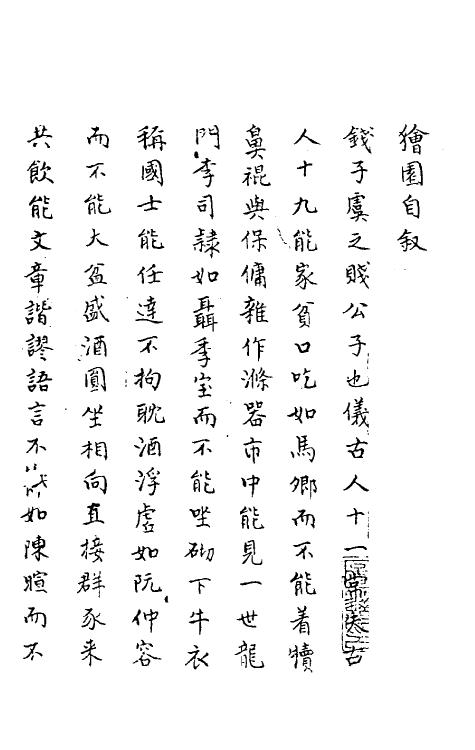 獪園自敘
錢子虞之賤公子也儀古人十一當失古
人十九能家貧口吃如馬卿而不能着犢
鼻裩與保傭雜作滌器市中能見一世龍
門李司隸如聶季寶而不能坐砌下牛衣
稱國士能任達不拘耽酒浮虛如阮仲容
而不能大盆盛酒圓坐相向直接群豕来
共飲能文章諧謬語言不節如陳暄而不